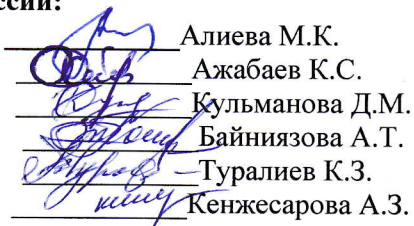 ссии:
Алиева М.К.
Ажабаев К.С.
Кульманова Д.М.
Байниязова А.Т.
Туралиев К.З.
Кенжесарова А.З.